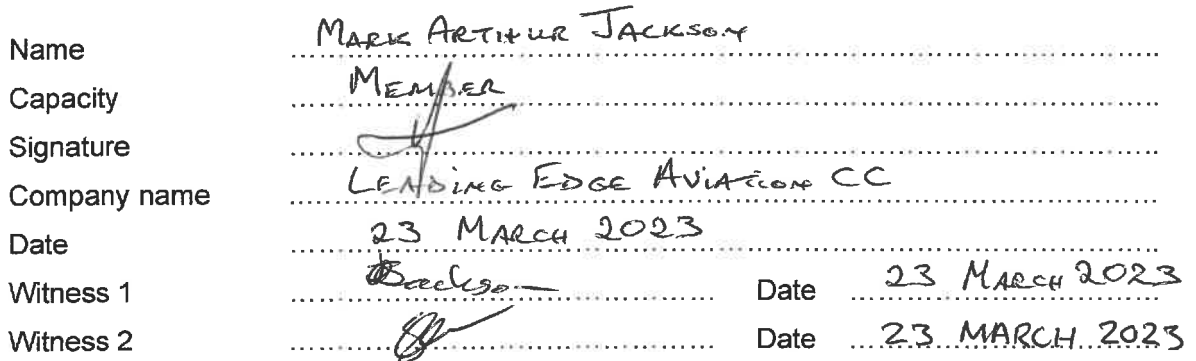 Name MARK ARTHUR JACKSON
Capacity MEMBER
Signature
Company name LEADING EDGE AVIATION CC
Date 23 MARCH 2023
Witness 1 Date 23 MARCH 2023
Witness 2 Date 23 MARCH 2023